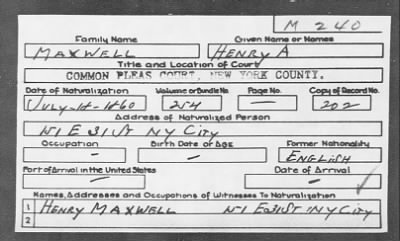 M 240
Family Name Given Name or Names
MAXWELL HENRY A
Title and Location of Court
COMMON PLEAS COURT, NEW YORK COUNTY.
Date of Naturalization Volume or Bundle No. Page No. Copy of Record No.
JULY-14-1860 254 — 202
Address of Naturalized Person
141 E 31 ST NY CITY
Occupation Birth Date or Age Former Nationality
— — ENGLISH
Port of Arrival in the United States Date of Arrival
— —
Names, Addresses and Occupations of Witnesses To Naturalization
1 HENRY MAXWELL 141 E 31 ST NY CITY
2